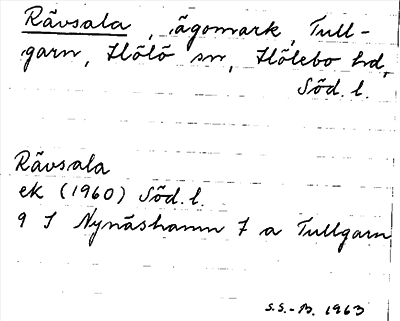 Rävsala, ägomark, Tull-
garn, Hölö sn, Hölebo hd,
Söd. l.
Rävsala
ek (1960) Söd. l.
9 I Nynäshamn 7 a Tullgarn
S.S.-B. 1963